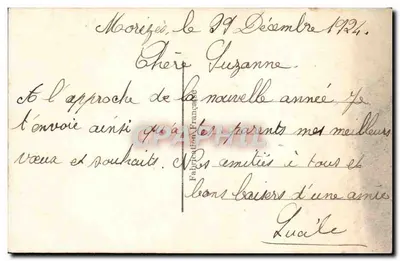 Morizès, le 29 Décembre 1924.
Chère Suzanne.
A l'approche de la nouvelle année, je
t'envoie ainsi qu'à tes parents mes meilleurs
vœux et souhaits. Nos amitiés à tous et
bons baisers d'une amie
Lucile
Fabrication Française